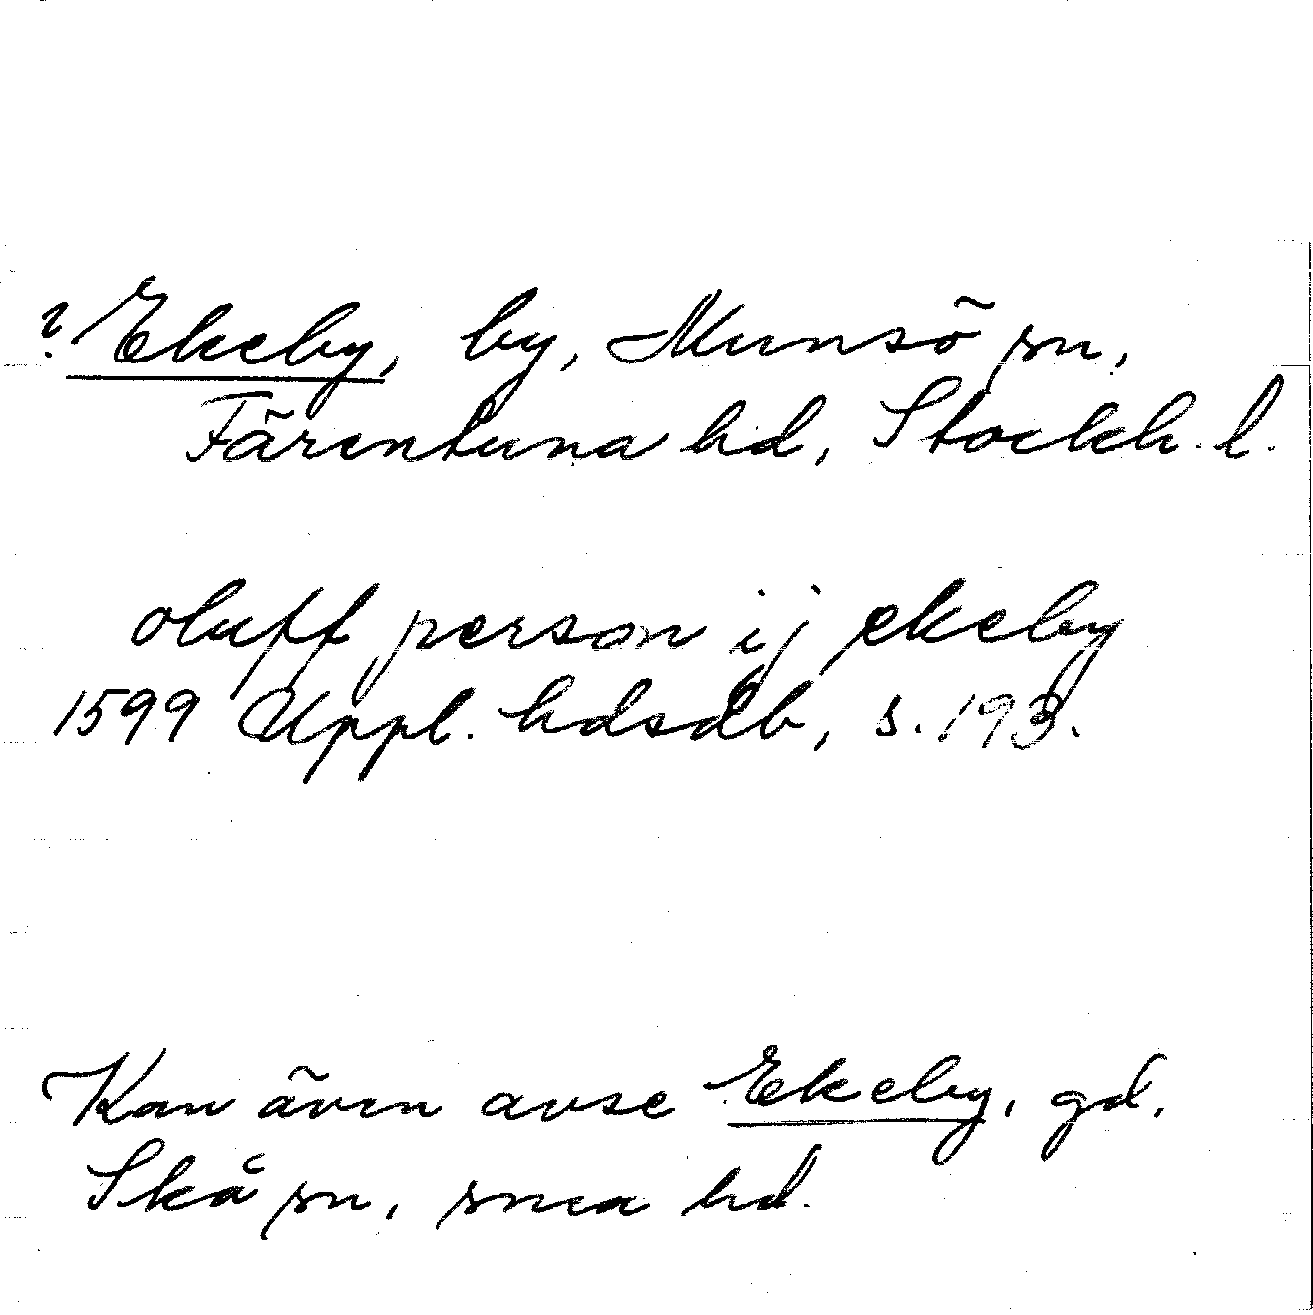 ? Ekeby, by, Munsö sn,
Färentuna hd, Stockh. l.
oluff person ij ekeby
1599 Uppl. hdsdb, s. 193.
Kan även avse Ekeby, gd.
Skå sn, sma hd.